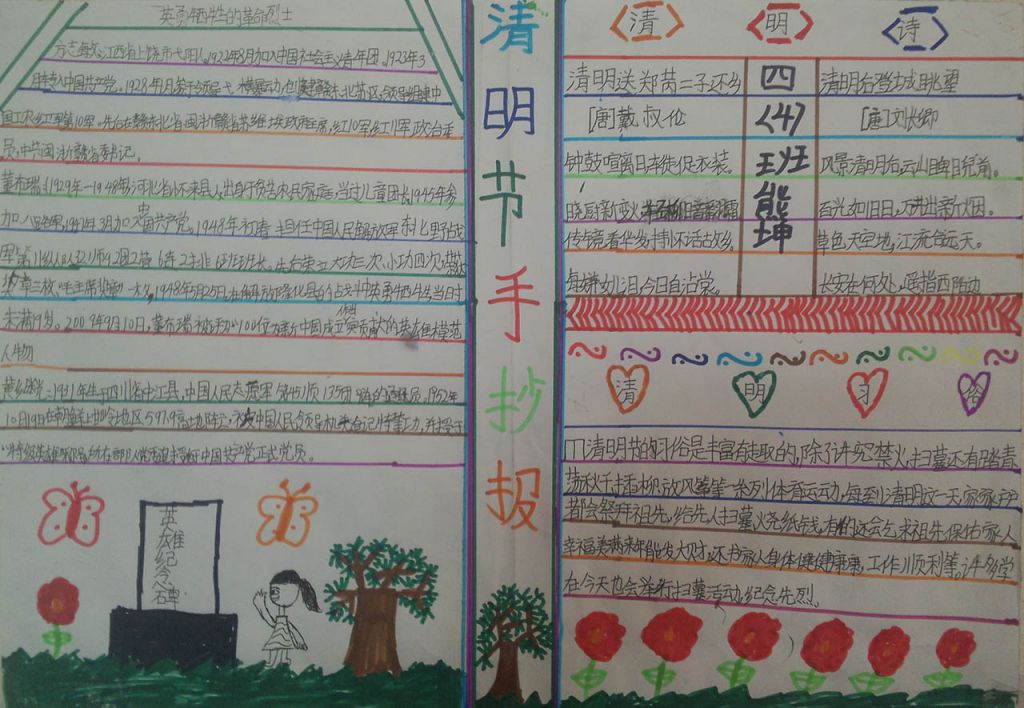 英勇牺牲的革命烈士
方志敏:江西省上饶市弋阳人,1922年8月加入中国社会主义青年团,1923年3
月转入中国共产党,1928年1月
工农红军第10军,先后任赣东北省 闽浙赣省苏维埃政府主席,红10军 红11军政治委
员,中共闽浙赣省委书记。
董存瑞:(1929年-1948年)河北省怀来县人,出身于贫苦农民家庭,当过儿童团长,1945年参
加八路军,1947年3月加入中国共产党。1948年初春 担任中国人民解放军东北野战
军第11纵队32师96团2营6连2排6班班长。先后荣立大功三次、小功四次,荣获
章三枚、"毛主席奖章"一枚,1948年5月25日在解放隆化县的战斗中英勇牺牲,当时
未满19岁。2009年9月10日,董存瑞被评为"100位为新中国成立作出突出贡献的英雄模范
人物
黄继光:1931年生于四川省中江县,中国人民志愿军第45师135团 通信员,1952年
10月19日在朝鲜上甘岭地区597.9高地阵亡,被中国人民领导机关追记特等功,并授予
"特级英雄"
中国共产党正式党员。
英雄纪念碑
清明节手抄报
清 明 诗
清明送郑芮二子还乡
[唐]戴叔伦
钟鼓喧离日,车徒促夜装。
晓厨新变火,
传镜看华发,持杯话故乡。
每嫌儿女泪,今日自沾裳。
四
(4)
班
熊
坤
清明后登城眺望
[唐]刘长卿
风景清明后,云山睥睨前。
百光如旧日,万井出新烟。
草色无空地,江流合远天。
长安在何处,遥指夕阳边
清 明 习 俗
清明节的习俗是丰富有趣的,除了讲究禁火,扫墓还有踏青
荡秋千,插柳,放风筝等一系列体育运动,每到清明这一天,家家户户
都会祭拜祖先,给先人扫墓火烧纸钱,有的还会乞求祖先保佑家人
幸福美满来年能发大财,还求家人身体健健康康,工作顺利等。许多学
在今天也会举行扫墓活动,纪念先烈。